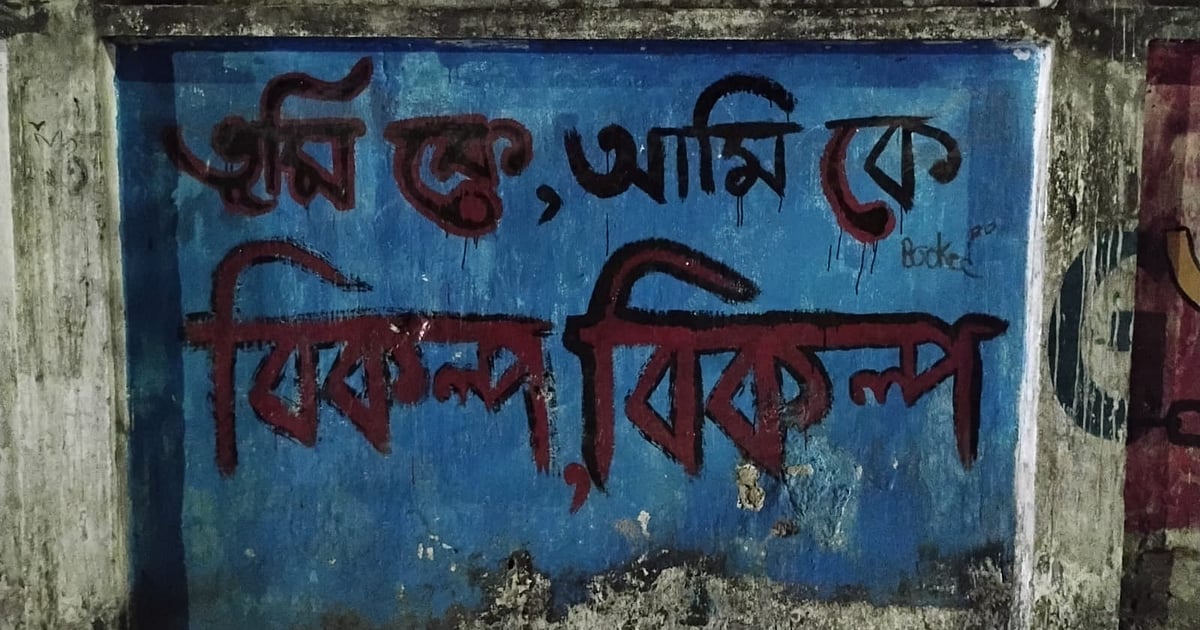 তুমি কে, আমি কে
Booked
বিকল্প, বিকল্প